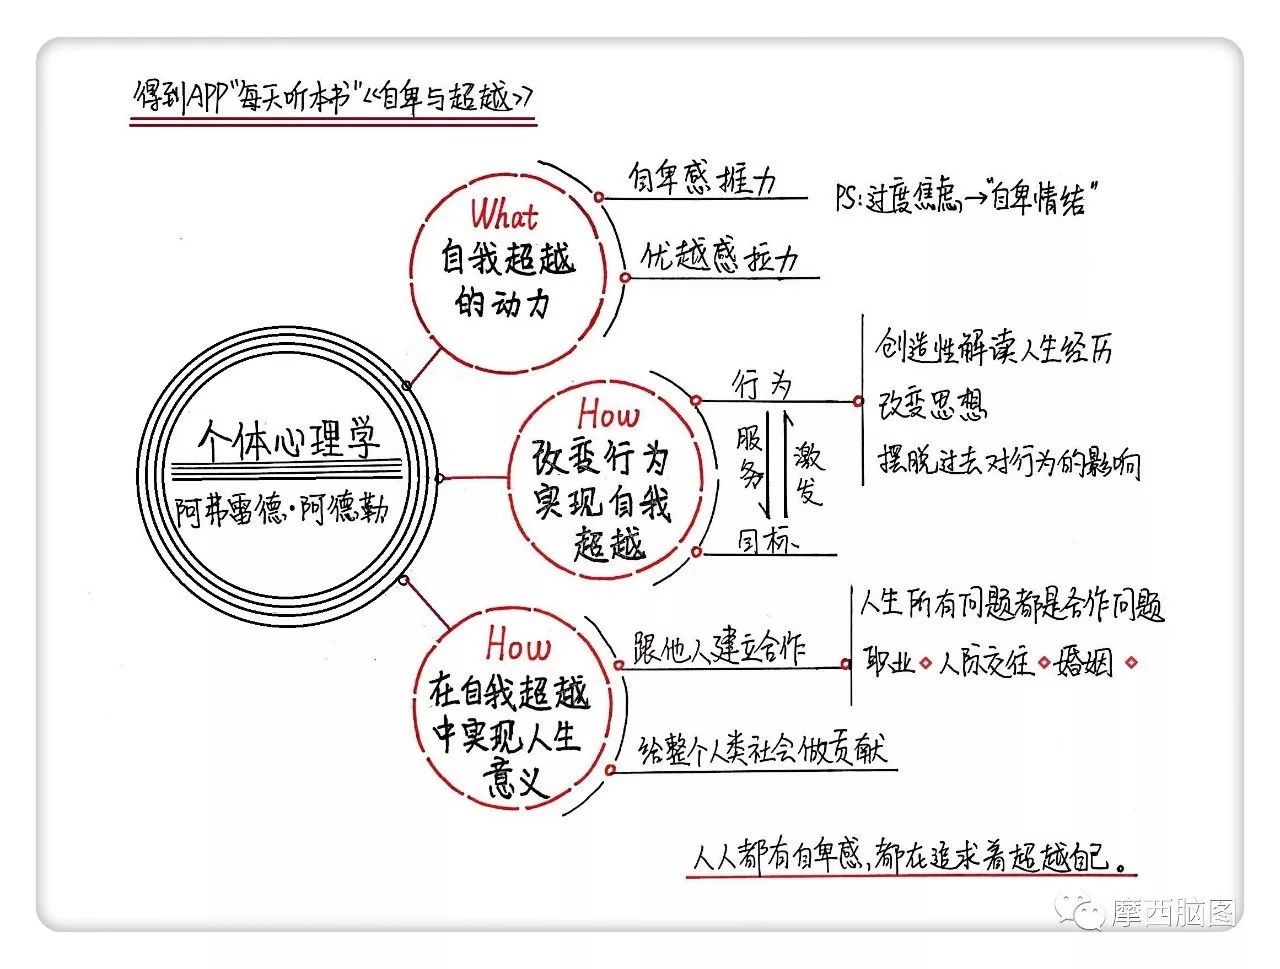 得到APP"每天听本书"《自卑与超越》
个体心理学
阿弗雷德·阿德勒
What
自我超越
的动力
自卑感推力
PS:过度焦虑→"自卑情结"
优越感拉力
How
改变行为
实现自我
超越
行为
服务
激发
目标
创造性解读人生经历
改变思想
摆脱过去对行为的影响
How
在自我超越
中实现人生
意义
跟他人建立合作
人生所有问题都是合作问题
职业 人际交往 婚姻
给整个人类社会做贡献
人人都有自卑感,都在追求着超越自己。
摩西脑图